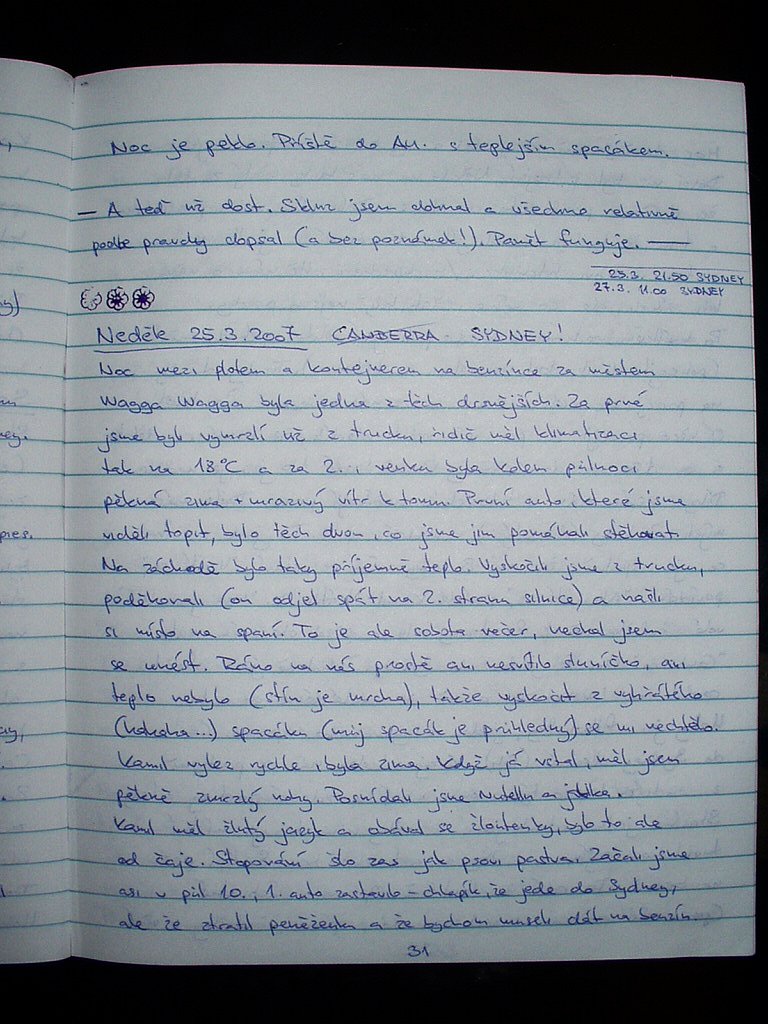 Noc je peklo. Příště do Au. s teplejším spacákem.
— A teď už dost. Skluz jsem dohnal a všechno relativně
podle pravdy dopsal (a bez poznámek!). Paměť funguje. —
25.3. 21.50 SYDNEY
27.3. 11.00 SYDNEY
Neděle 25.3.2007 CANBERRA - SYDNEY!
Noc mezi plotem a kontejnerem na benzínce za městem
Wagga Wagga byla jedna z těch drsnějších. Za prvé
jsme byli vymrzlí už z trucku, řidič měl klimatizaci
tak na 18°C a za 2. i venku byla kolem půlnoci
pěkná zima + mrazivý vítr k tomu. První auto, které jsme
viděli topit, bylo těch dvou, co jsme jim pomáhali stěhovat.
Na záchodě bylo taky příjemně teplo. Vyskočili jsme z trucku,
poděkovali (on odjel spát na 2. stranu silnice) a našli
si místo na spaní. To je ale sobota večer, nechal jsem
se unést. Ráno na nás prostě ani nesvítilo sluníčko, ani
teplo nebylo (stín je mrcha), takže vyskočit z vyhřátého
(hahaha...) spacáku (můj spacák je průhledný) se mi nechtělo.
Kamil vylez rychle, byla zima. Když já vstal, měl jsem
pěkně zmrzlý nohy. Posnídali jsme Nutellu a jablka.
Kamil měl žlutý jazyk a obával se žloutenky, bylo to ale
od čaje. Stopování šlo zas jak psovi pastva. Začali jsme
asi v půl 10., 1. auto zastavilo - chlapík, že jede do Sydney,
ale že ztratil peněženku a že bychom museli dát na benzín.
31